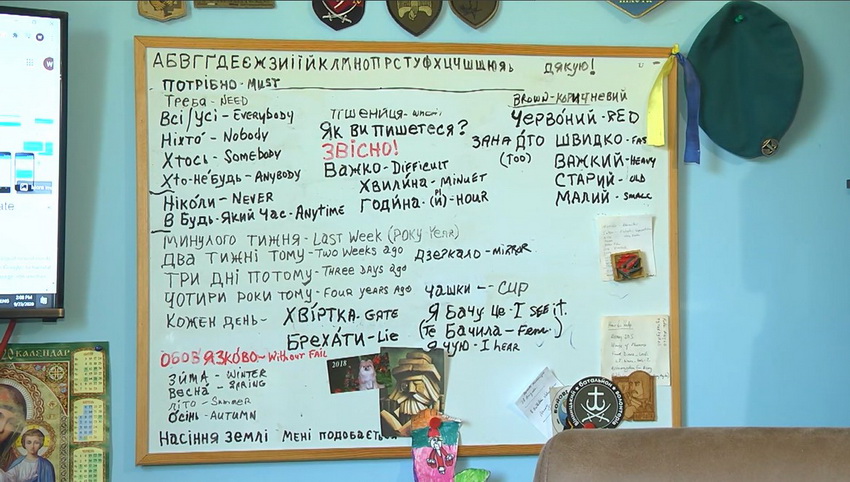 АБВГҐДЕЄЖЗИІЇЙКЛМНОПРСТУФХЦЧШЩЮЯЬ
ДЯКУЮ!
ПОТРІБНО - MUST
Треба - NEED
Всі/Усі - EVERYBODY
Ніхто - Nobody
Хтось - SOMEBODY
Хто-небудь - ANYBODY
Ніколи - NEVER
В Будь-Який Час - Anytime
ПШЕНИЦЯ -
Як ви пишетеся?
ЗВІСНО!
Важко - DIFFICULT
Хвилина - MINUET
Година - (И) - HOUR
BROWN - КОРИЧНЕВИЙ
ЧЕРВОНИЙ - RED
ЗАНАДТО
(TOO)
ШВИДКО - FAS
ВАЖКИЙ - HEAVY
СТАРИЙ - OLD
МАЛИЙ - SMALL
МИНУЛОГО ТИЖНЯ - LAST WEEK (РОКУ YEAR)
ДВА ТИЖНІ ТОМУ - TWO WEEKS ago
ДЗЕРКАЛО - MIRROR
ТРИ ДНІ ПОТОМУ - THREE DAYS ago
ЧОТИРИ РОКИ ТОМУ - FOUR YEARS AGO
ЧАШКИ - CUP
КОЖЕН ДЕНЬ -
ХВІРТКА - GATE
БРЕХАТИ - Lie
Я Бачу Це - I SEE iT.
(Те Бачила - Fem.)
Я ЧУЮ - I HEAR
ОБОВ'ЯЗКОВО - Without FAIL
ЗИМА - WINTER
Весна - SPRING
Літо - Summer
Осінь - AUTUMN
Насіння землі
Мені подобається
2018
20 КАЛЕНДАР
2:08 PM